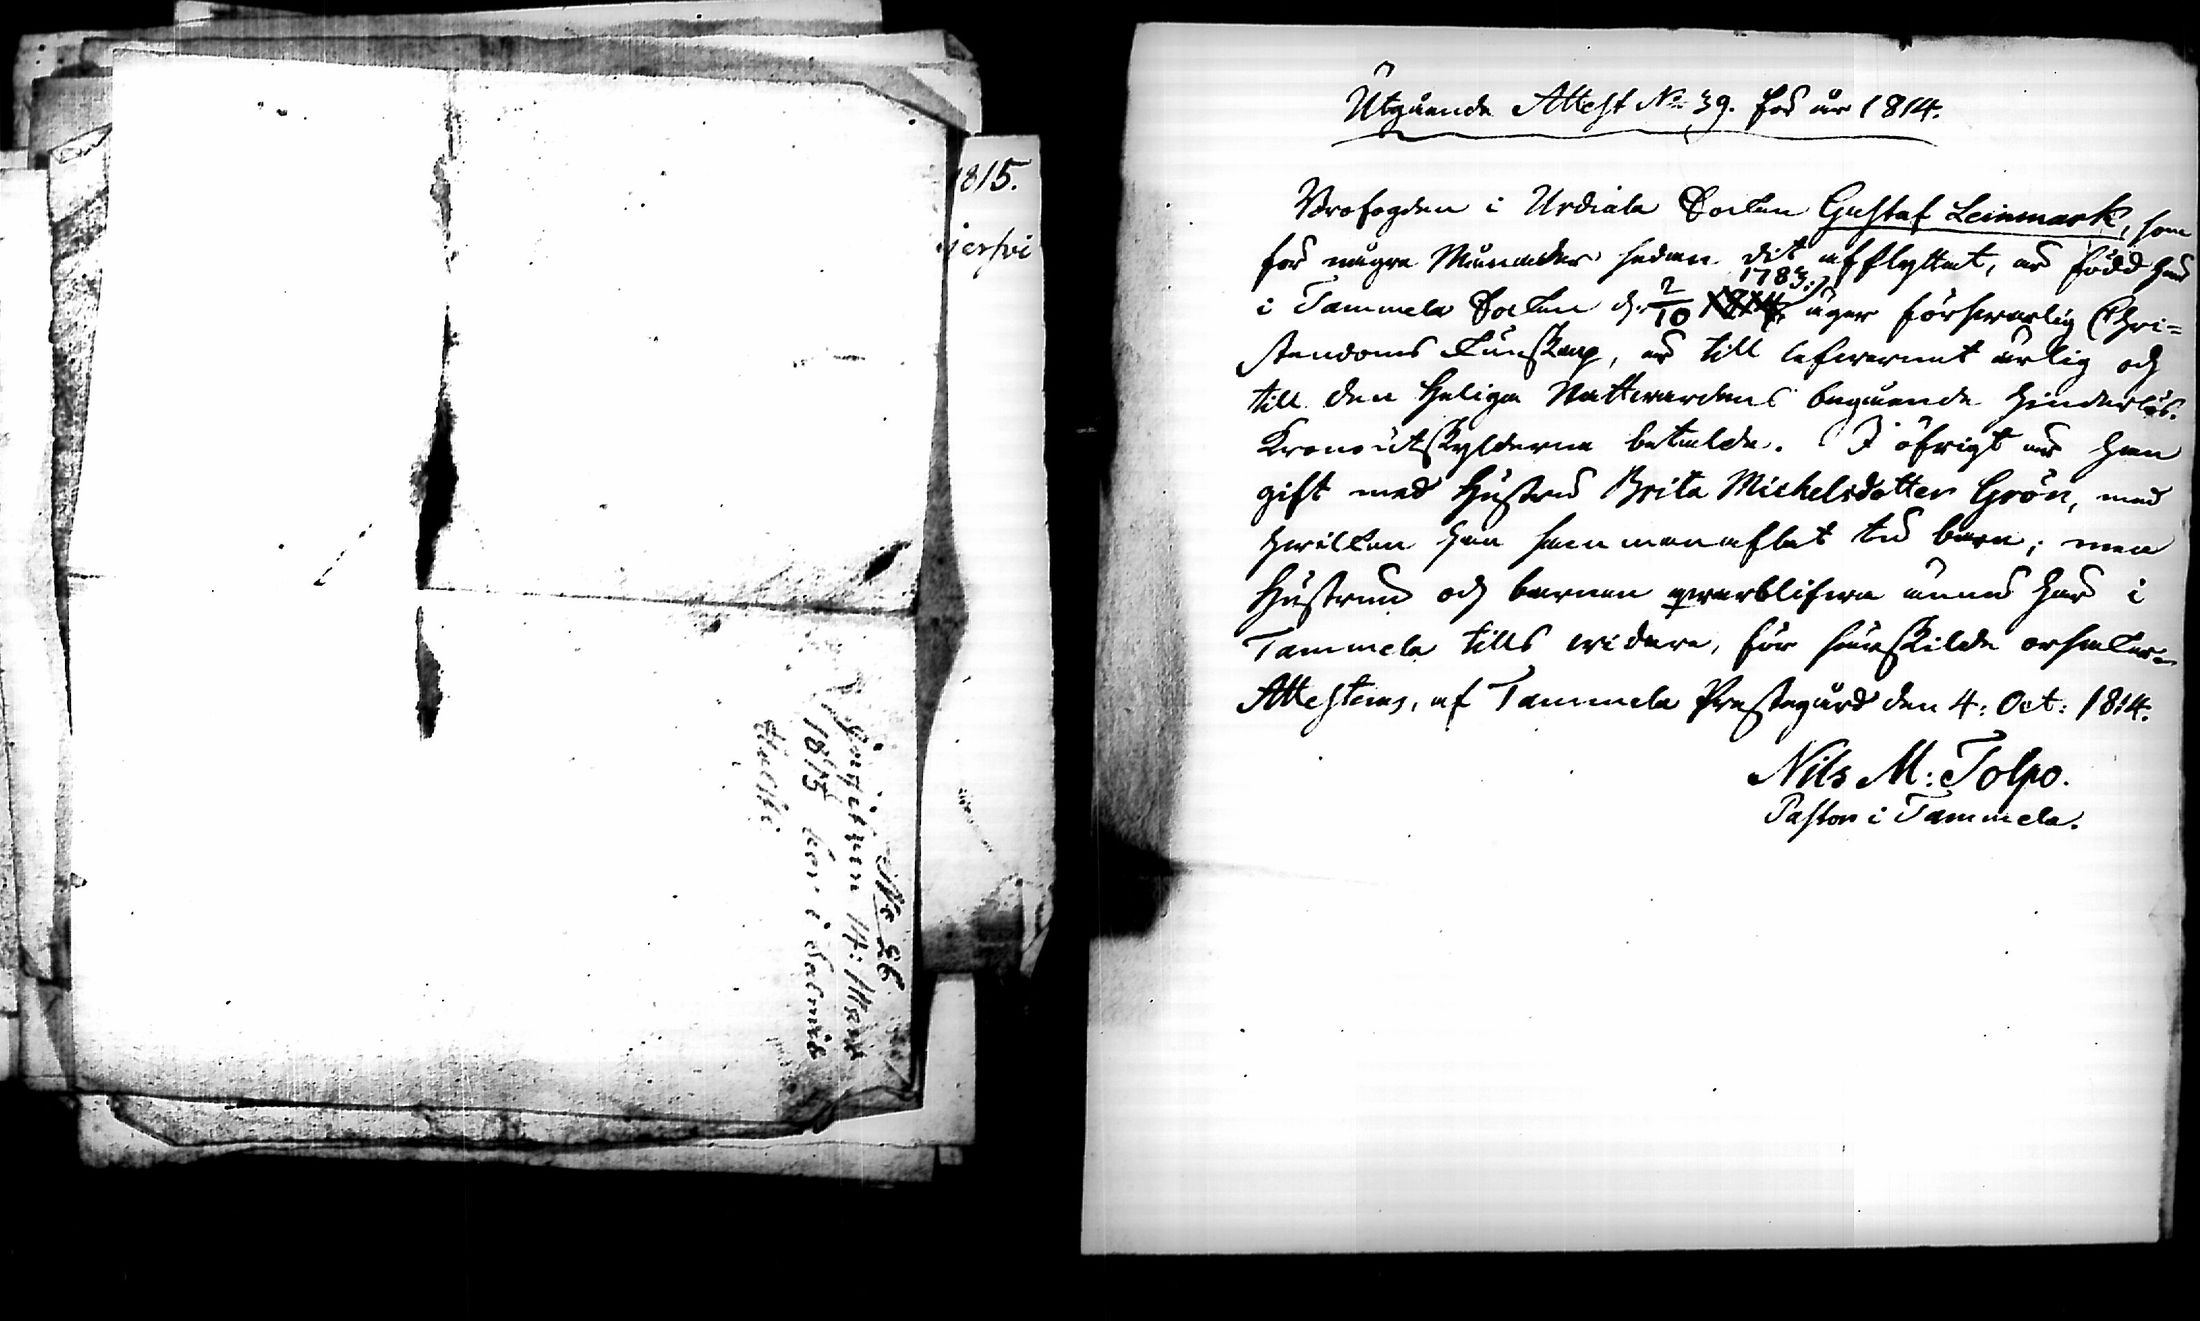 1815.
No 26
Ingifven 14: Mars
1815
Utgående Attest No 39. för år 1814.
Brofogden i Urdiala Socken Gustaf Leinmark, som
för några Månader sedan dit afflyttat, är född här
i Tammela Socken d. 2/10 1783. äger försvarlig Chri=
stendoms Kunskap, är till lefvernet ärlig och
till den Heliga Nattvardens begående hinderlös.
Kronoutskylderna betalda. I öfrigt är han
gift med Hustru Brita Michelsdotter Grön, med
hvilken han sammanaflat tu barn; men
Hustrun och barnen qvarblifva ännu här i
Tammela tills vidare, för särskilda orsaker.
Attesteras, af Tammela Prestegård den 4: Oct: 1814.
Nils M: Tolpo.
Pastor i Tammela.